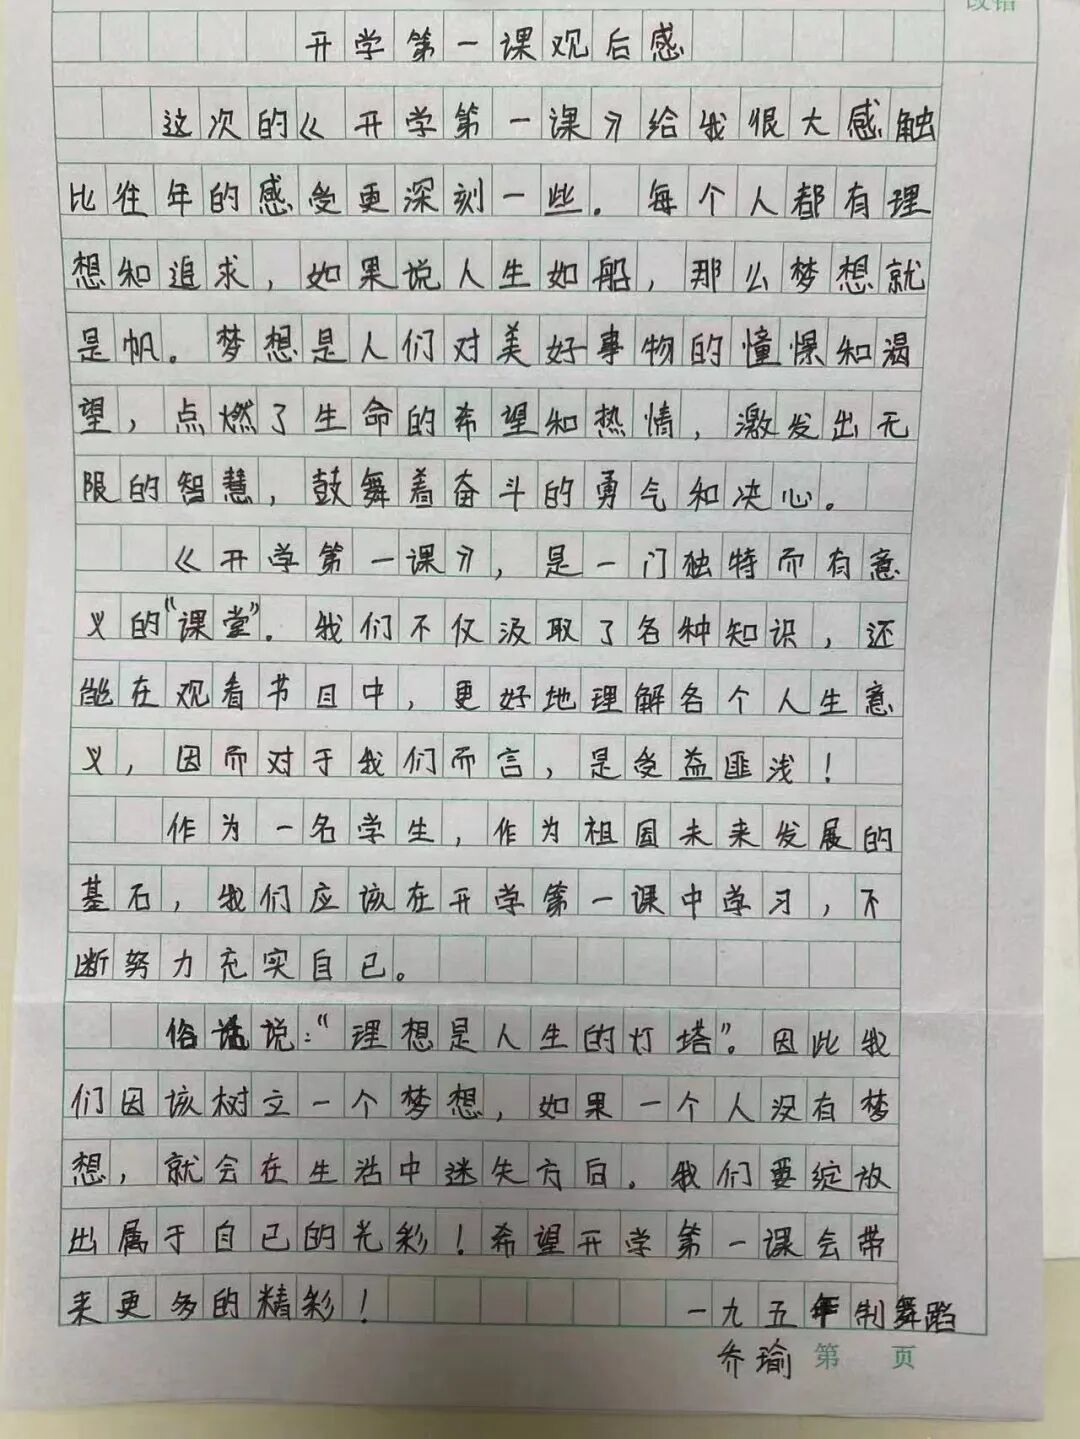 改错
开学第一课观后感
这次的《开学第一课》给我很大感触
比往年的感受更深刻一些。每个人都有理
想和追求，如果说人生如船，那么梦想就
是帆。梦想是人们对美好事物的憧憬和渴
望，点燃了生命的希望和热情，激发出无
限的智慧，鼓舞着奋斗的勇气和决心。
《开学第一课》，是一门独特而有意
义的“课堂”。我们不仅汲取了各种知识，还
能在观看节目中，更好地理解各个人生意
义，因而对于我们而言，是受益匪浅！
作为一名学生，作为祖国未来发展的
基石，我们应该在开学第一课中学习，不
断努力充实自己。
俗话说：“理想是人生的灯塔”。因此我
们因该树立一个梦想，如果一个人没有梦
想，就会在生活中迷失方向。我们要绽放
出属于自己的光彩！希望开学第一课会带
来更多的精彩！
一九五年制舞蹈
乔瑜
第 页